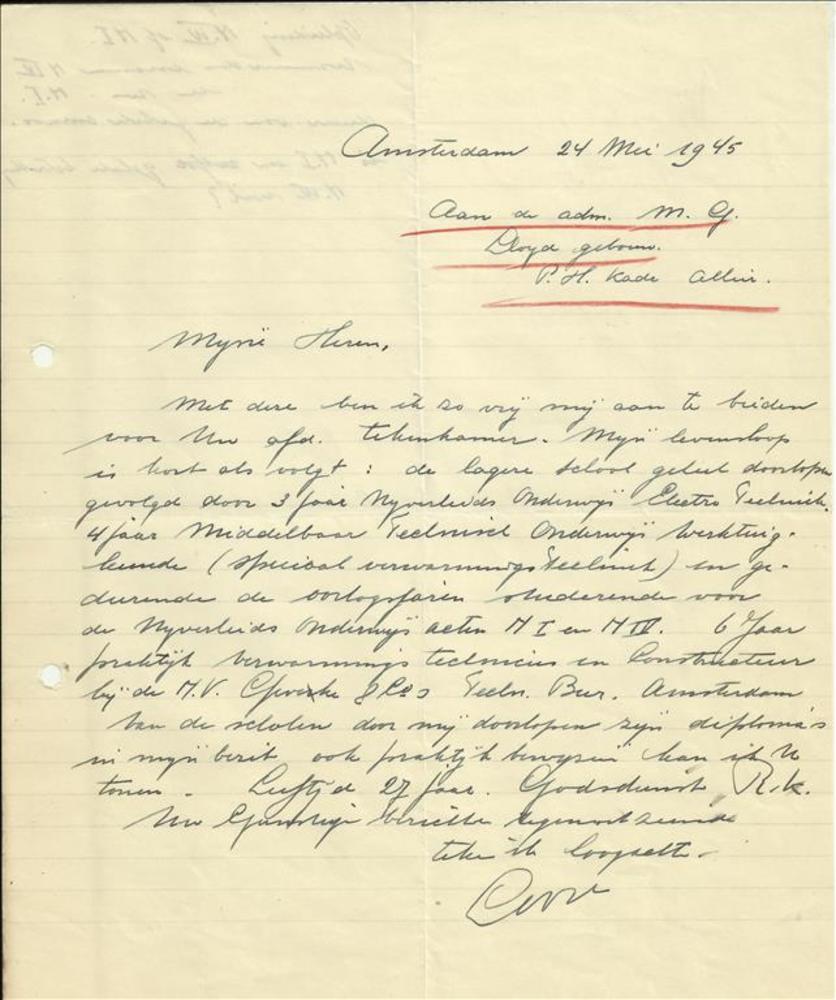 Amsterdam 24 Mei 1945
Aan de adm. M. G.
Lloyd gebouw.
P. H. Kade Alhier.
Mijne Heren,
Met deze ben ik zo vrij mij aan te bieden
voor Uw afd. tekenkamer. Mijn levensloop
is kort als volgt: de lagere school geheel doorlopen
gevolgd door 3 jaar Nijverheids Onderwijs Electro Techniek.
4 jaar Middelbaar Technisch Onderwijs Werktuig-
kunde (speciaal verwarmings techniek) en ge-
durende de oorlogsjaren studerende voor
de Nijverheids Onderwijs acten N I en N IV. 6 Jaar
praktijk verwarmings technicus en Constructeur
bij de N.V. & Co's Techn. Bur. Amsterdam
Van de scholen door mij doorlopen zijn diploma's
in mijn bezit ook praktijk bewijzen kan ik U
tonen. Leeftijd 27 jaar. Godsdienst R.k.
Uw Gunstige berichten tegemoet ziende
teken ik hoogacht.